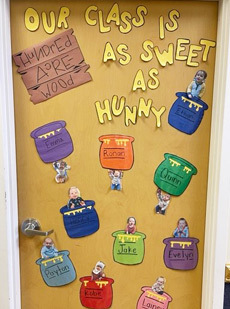 OUR CLASS IS
AS SWEET
AS
HUNNY
HUNDRED
AcRE
WOOD
Emma
Ronan
Quinn
Jake
Evelyn
Peyton
Kobe
Laine